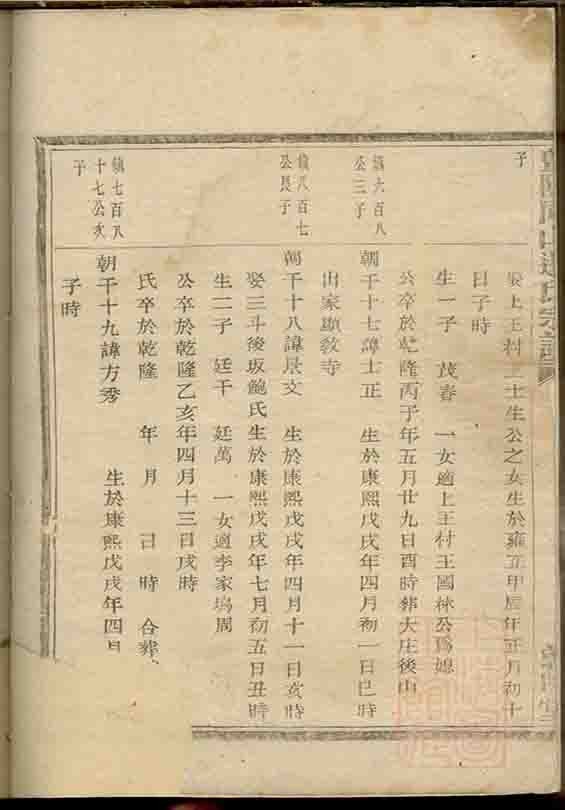 子
娶上王村王士生公之女生於雍正甲辰年正月初十
日子時
生一子 茂春 一女適上王村王國林公爲媳
公卒於乾隆丙子年五月廿九日酉時葬大庄後山
鎮六百八
公三子
朝千十七諱士正 生於康熙戊戌年四月初一日巳時
出家顯教寺
鎮八百七
公長子
朝千十八諱景文 生於康熙戊戌年四月十一日亥時
娶三斗後坂鮑氏生於康熙戊戌年七月初五日丑時
生二子 廷干 廷萬 一女適李家塢周
公卒於乾隆乙亥年四月十三日戌時
氏卒於乾隆 年 月 日 時 合葬
鎮七百八
十七公次
子
朝千十九諱方秀 生於康熙戊戌年四月
子時